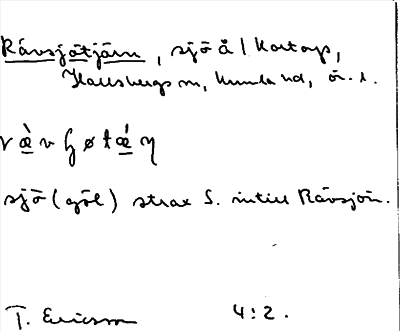 Rävsjötjärn, sjö å 1 kartags,
Hallsbergs sn, Kumla hd, ör. l.
sjö (göl) strax S. intill Rävsjön.
T. Ericsson 4:2.